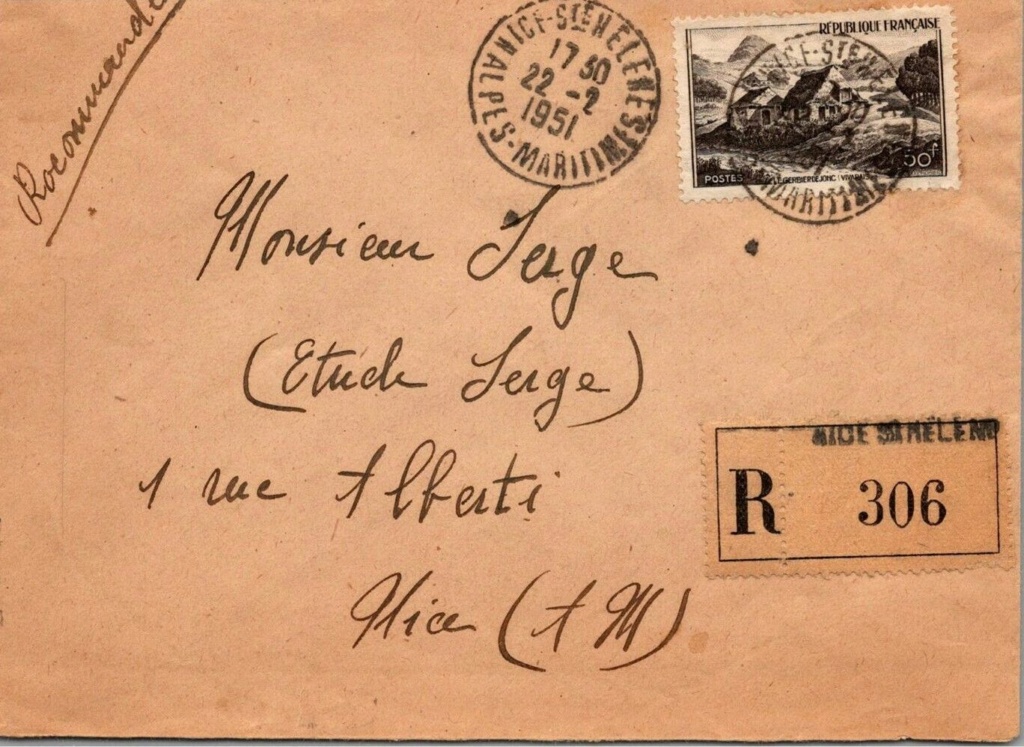 Recommandé
NICE-STE HELENE
17 30
22 -2
1951
ALPES-MARITIMES
RÉPUBLIQUE FRANÇAISE
NICE-STE HE
MARITIM
50f
POSTES LE GERBIER DE JONC (VIVARAIS
Monsieur Serge
(Etude Serge)
1 rue Alberti
Nice (A M)
NICE STE HELENE
R 306